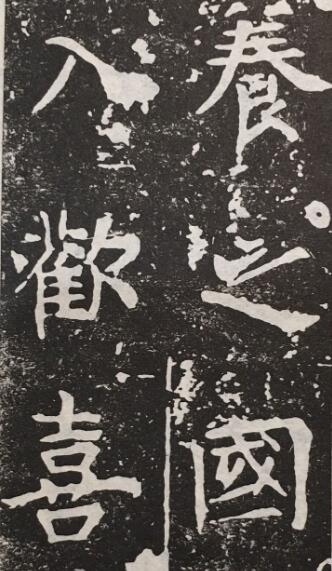 養之國
人歡喜